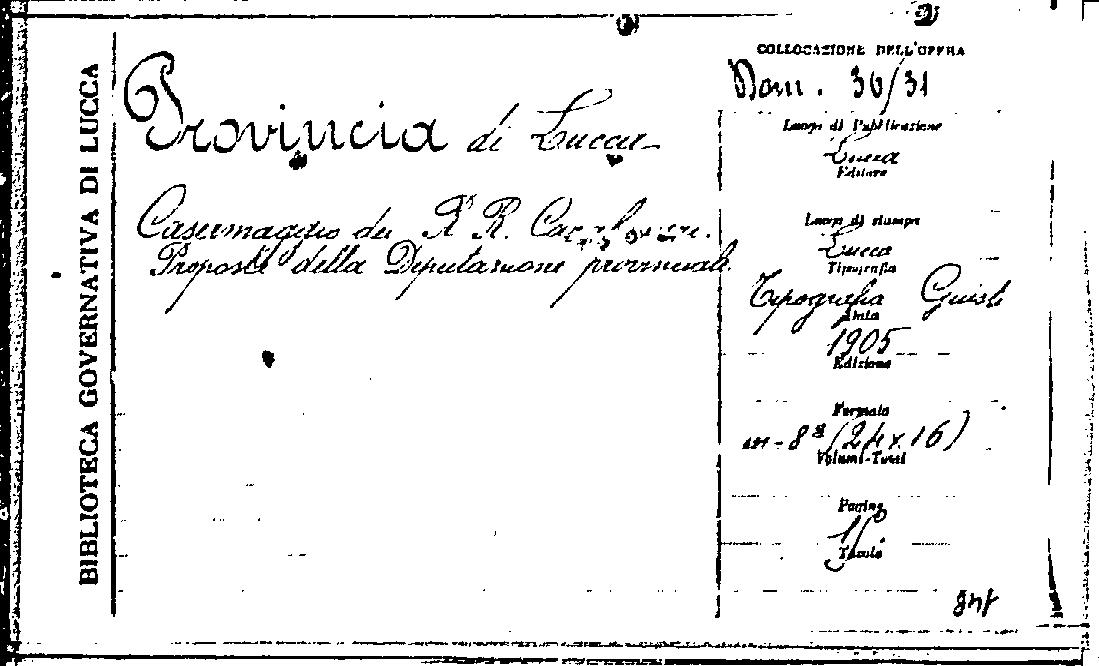 BIBLIOTECA GOVERNATIVA DI LUCCA
Provincia di Lucca
Casermaggio dei R.R. Carabinieri.
Proposte della Deputazione provinciale.
COLLOCAZIONE DELL'OPERA
Dom. 30/31
Luogo di Pubblicazione
Lucca
Editore
Luogo di stampa
Lucca
Tipografia
Tipografia Giusti
Data
1905
Edizione
Formato
in-8ª (24x16)
Volumi-Tomi
Pagine
Tavole